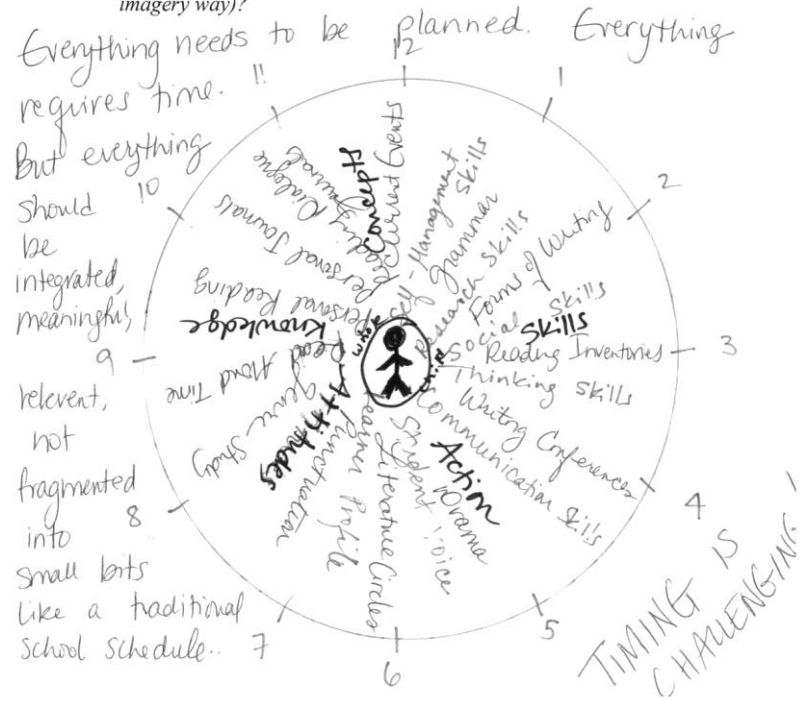 imagery way)?
Everything needs to be planned. Everything
requires time.
But everything
should
be
integrated,
meaningful,
relevent,
not
fragmented
into
small bits
like a traditional
school schedule..
12
1
2
3
4
5
6
7
8
9
10
11
Current Events
Self-Management Skills
Grammar
Research Skills
Forms of Writing
Social Skills
Skills
Reading Inventories
Thinking Skills
Writing Conferences
Communication Skills
Action
Drama
Student Voice
Literature Circles
Learner Profile
Punctuation
Attitudes
Genre Study
Read Aloud Time
Knowledge
Personal Reading
Personal Journals
Reading Dialogue Journals
Concepts
Whole
Child
TIMING IS
CHALLENGING!